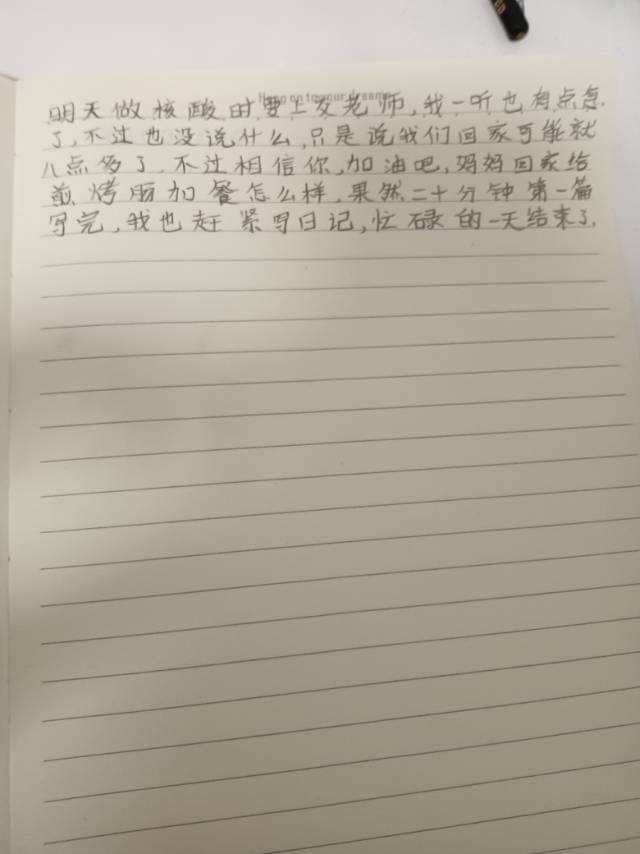 Hang on to your dreams
明天做核酸时要上交老师,我一听也有点急
了,不过也没说什么,只是说我们回家可能就
八点多了,不过相信你,加油吧,妈妈回家给
煎烤肠加餐怎么样,果然二十分钟第一篇
写完,我也赶紧写日记,忙碌的一天结束了.